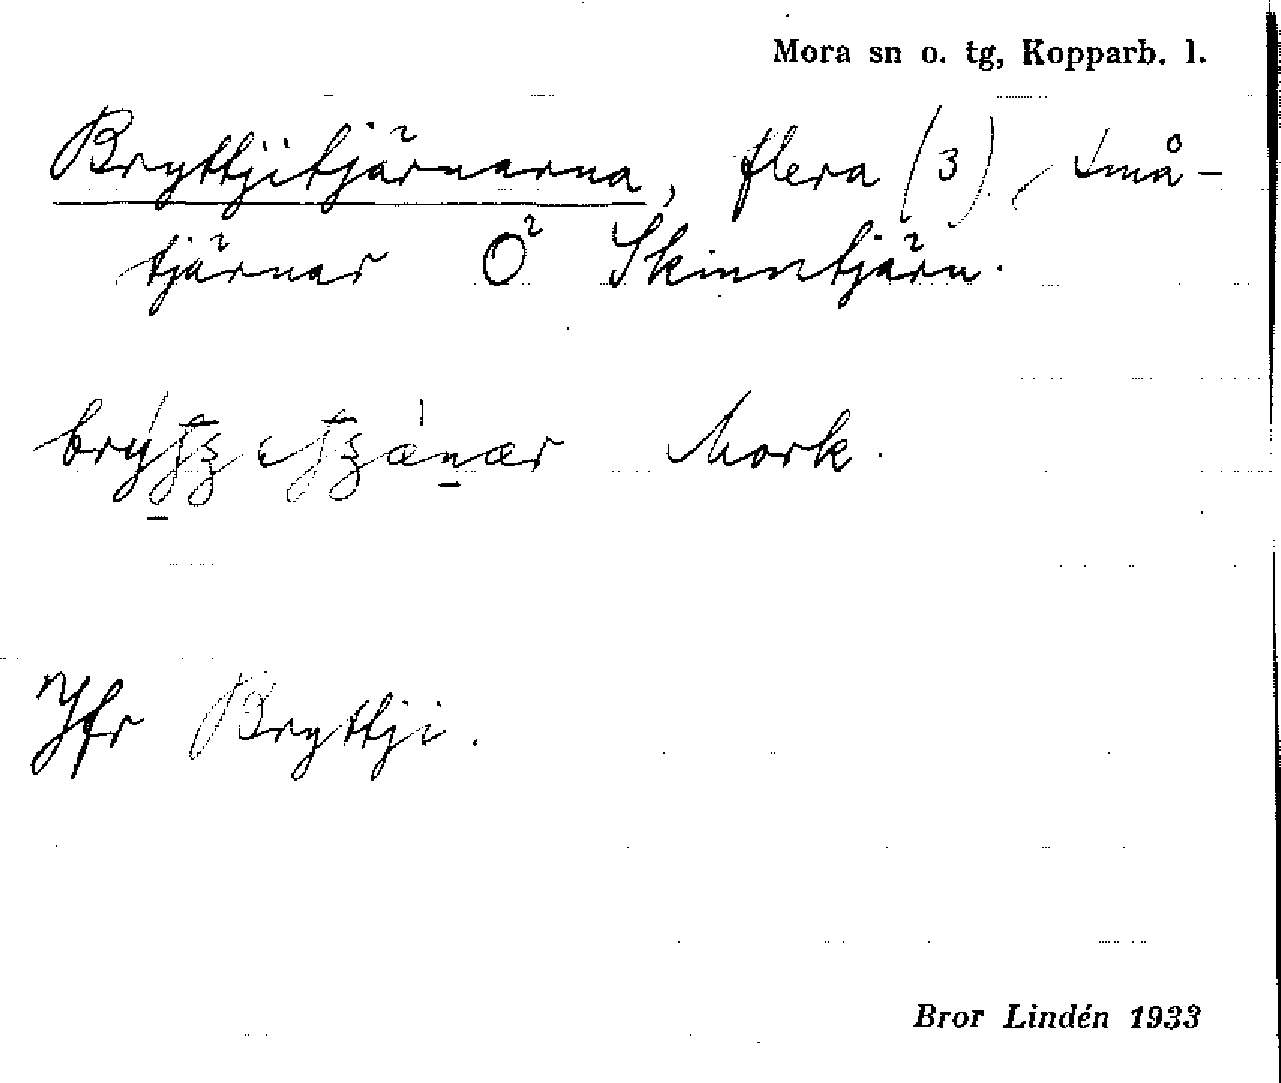 Mora sn o. tg, Kopparb. l.
Bryttjitjärnarna, flera (3), små-
tjärnar Ö Skinntjärn.
Mork.
Jfr Bryttji.
Bror Lindén 1933